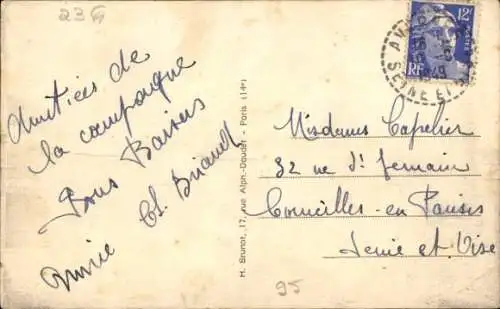 236
Amitiés de
la campagne
Bons Baisers
Cl. Briand
Annie
H. Brunot, 17, rue Alph.-Daudet - Paris (14e)
12F
POSTES
RF
SEINE ET
Mesdames Capelier
32 rue St Germain
Cormeilles-en Parisis
Seine et Oise
95